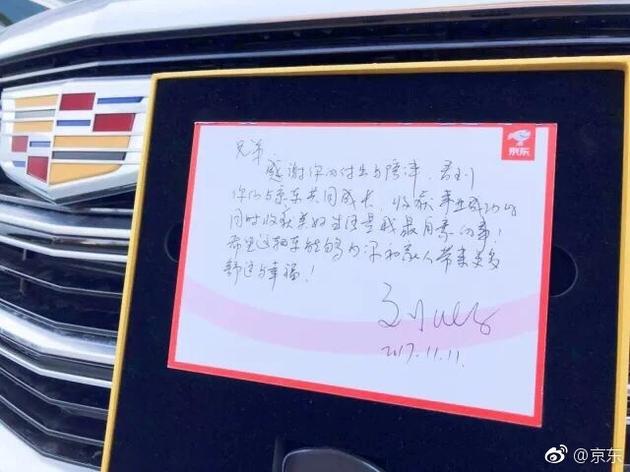 京东
兄弟
感谢你的付出与陪伴,看到
你们与京东共同成长,收获事业成功的
同时收获美好生活是我最自豪的事!
希望这辆车能够为你和家人带来更多
舒适与幸福!
2017.11.11.
@京东